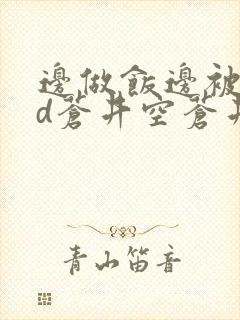 邊做飯邊被
d蒼井空蒼井
青山笛音